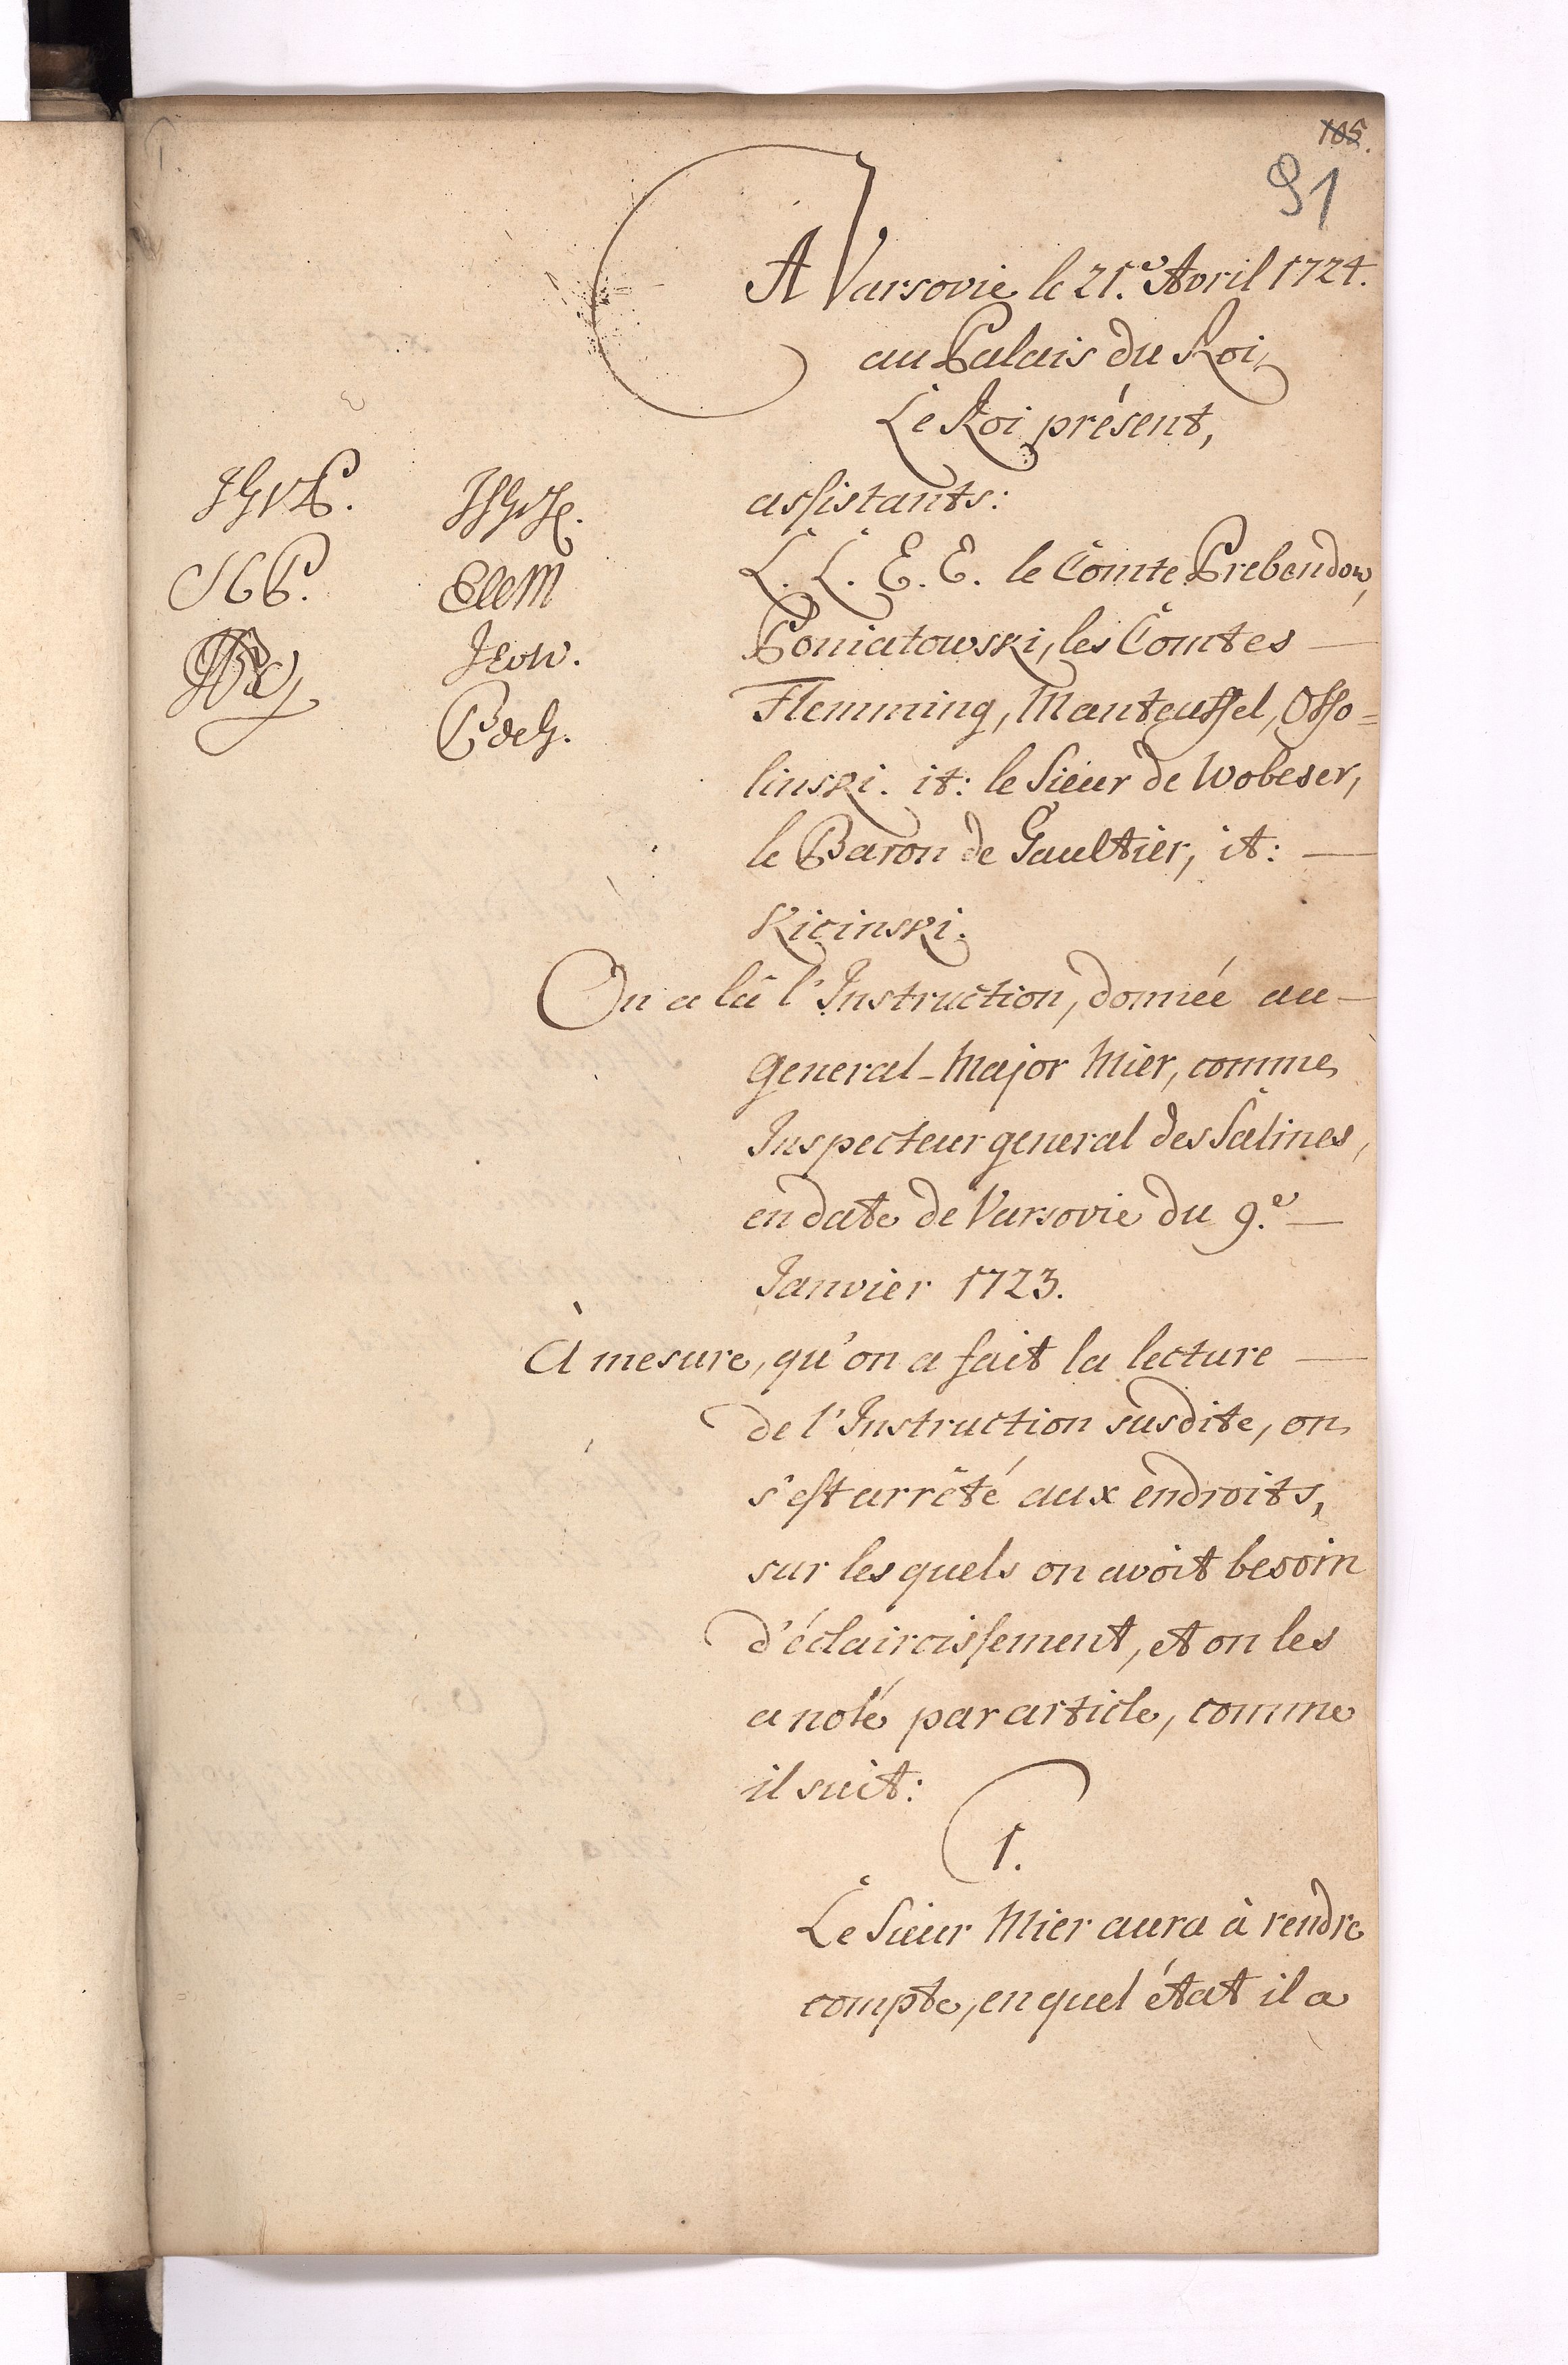 105.
91
A Varsovie le 21.e Avril 1724.
au Palais du Roi,
Le Roi présent,
assistants:
L. L. E. E. le Comte Prebendow,
Poniatowski, les Comtes —
Flemming, Manteuffel, Osso=
linski. it: le Sieur de Wobeser,
le Baron de Gaultier, it: —
Kicinski.
On a lû l'Instruction, donnée au —
general-Major Mier, comme
Inspecteur general des Salines,
en date de Varsovie du 9.e —
Janvier 1723.
À mesure, qu'on a fait la lecture —
de l'Instruction susdite, on
s'est arrêté aux endroits,
sur les quels on avoit besoin
d'éclaircissement, et on les
a noté par article, comme
il suit:
1.
Le Sieur Mier aura à rendre
compte, en quel état il a